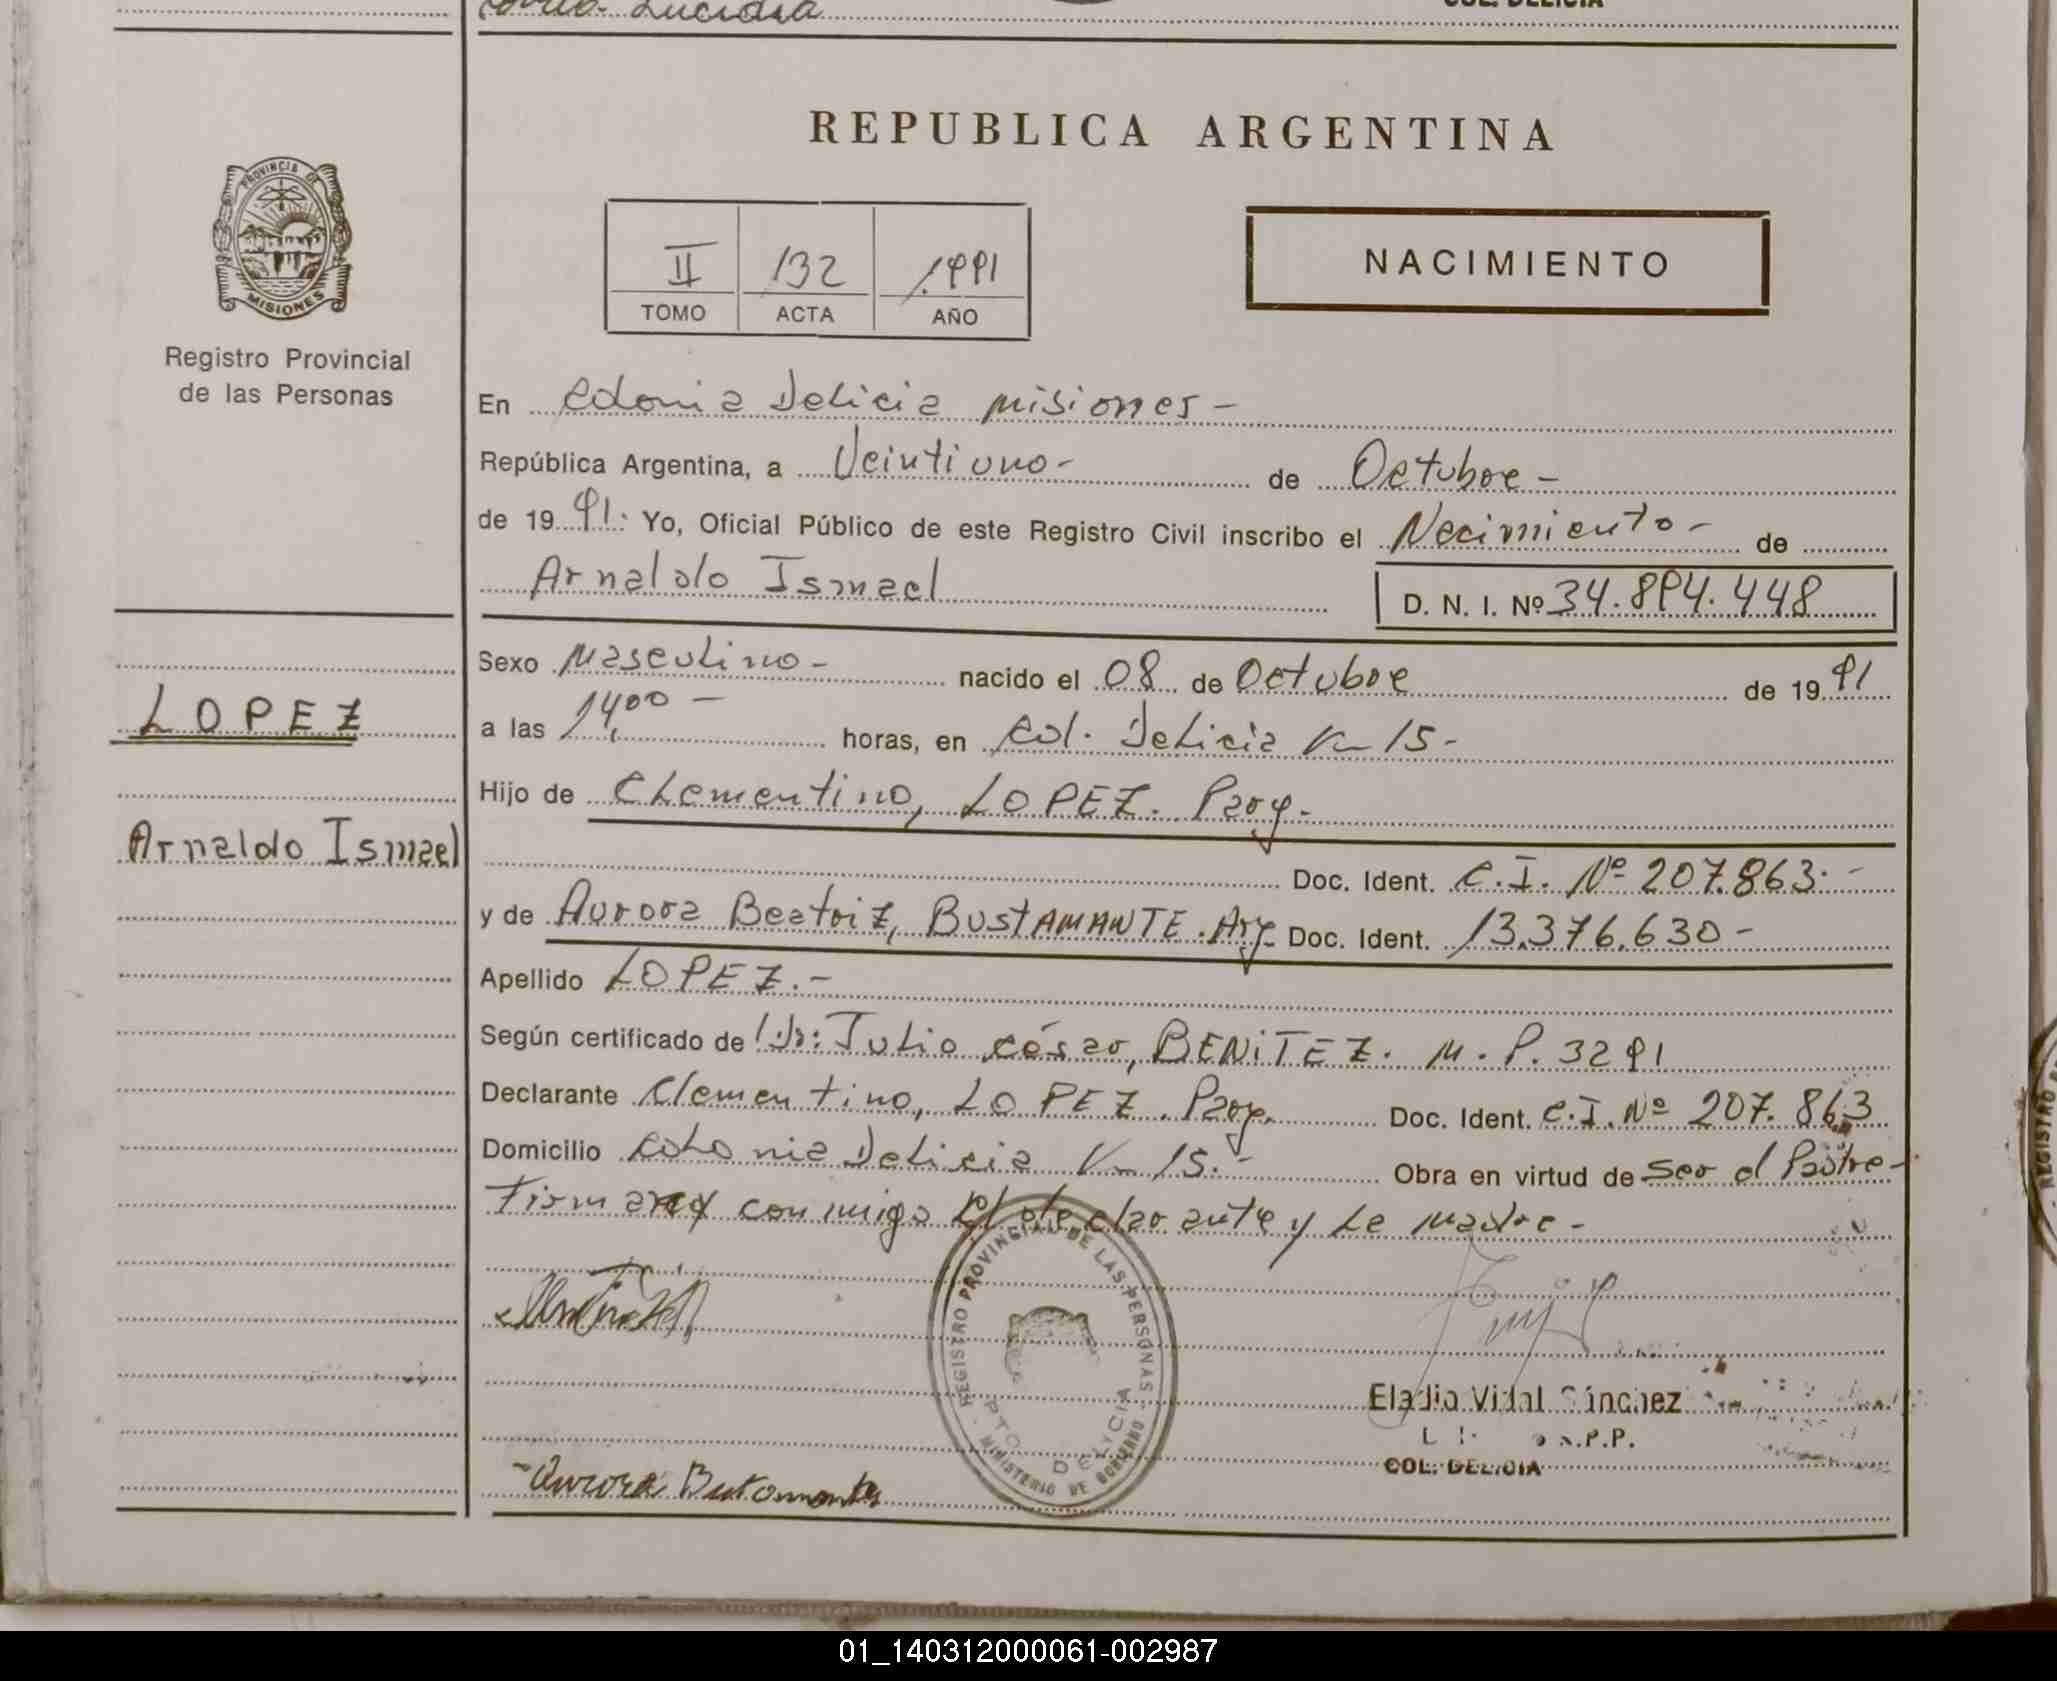 Lucidia
COL. DELICIA
REPUBLICA ARGENTINA
PROVINCIA DE
MISIONES
Registro Provincial
de las Personas
II 132 1.991
TOMO ACTA AÑO
NACIMIENTO
En Colonia Delicia Misiones -
República Argentina, a Veintiuno - de Octubre -
de 19 91. Yo, Oficial Público de este Registro Civil inscribo el Nacimiento - de
Arnaldo Ismael
D. N. I. Nº 34.894.448
Sexo Masculino - nacido el 08 de Octubre de 19 91
LOPEZ
a las 14,00 - horas, en Col. Delicia Km 15 -
Hijo de Clementino, LOPEZ. Parg.
Arnaldo Ismael
Doc. Ident. C.I. Nº 207.863. -
y de Aurora Beatriz, BUSTAMANTE. Arg. Doc. Ident. 13.376.630 -
Apellido LOPEZ. -
Según certificado de Dr: Julio César, BENITEZ. M. P. 3291
Declarante Clementino, LOPEZ. Parg. Doc. Ident. C.I. Nº 207.863
Domicilio Colonia Delicia Km 15. - Obra en virtud de Ser el Padre -
Firman conmigo el declarante y la madre -
REGISTRO PROVINCIAL DE LAS PERSONAS
PTO DELICIA
MINISTERIO DE GOBIERNO
Eladio Vidal Sánchez
R.P.P.
COL. DELICIA
- Aurora Bustamante
01_140312000061-002987